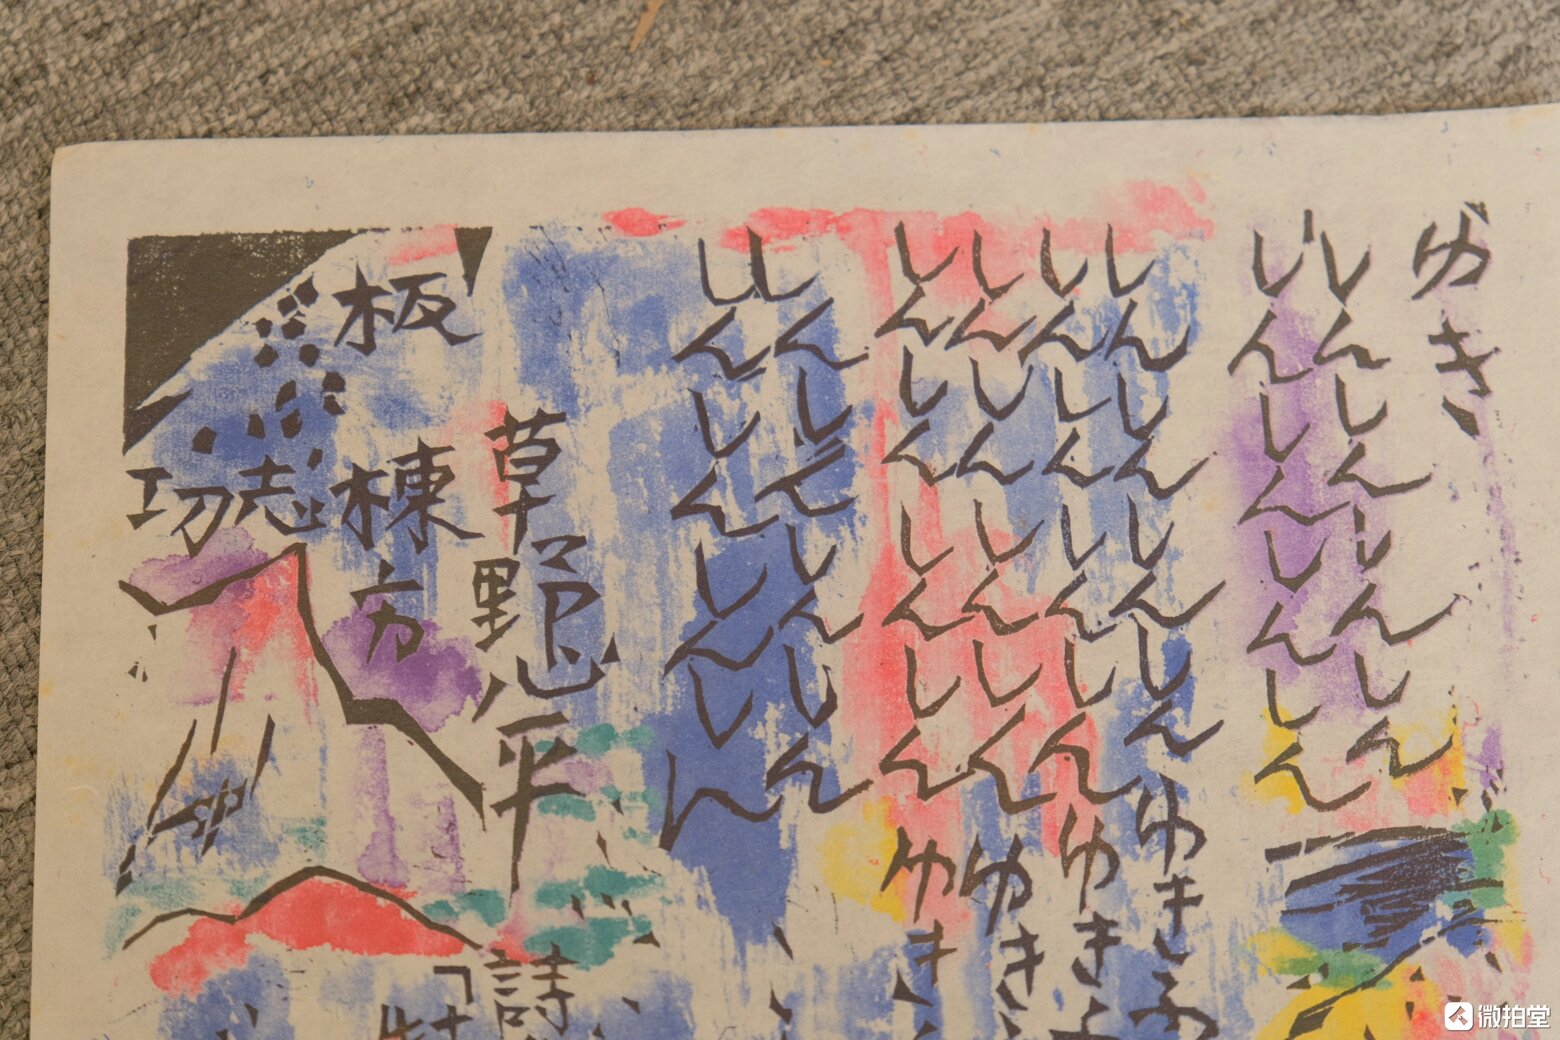 ゆき
しんしんしんしん
しんしんしんしん
しんしんしんしんゆきふ
しんしんしんしんゆき
しんしんしんしんゆき
しんしんしんしんゆき
しんしんしんしん
しんしんしんしん
草野心平 詩
板 棟方
志功
微拍堂